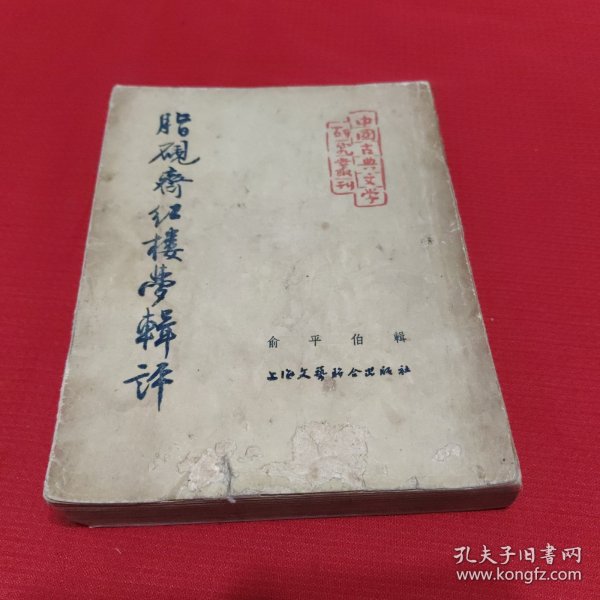 脂硯齋红楼夢輯評
中國古典文学
研究叢刊
俞平伯輯
上海文藝联合出版社
孔夫子旧书网
www.kongfz.com